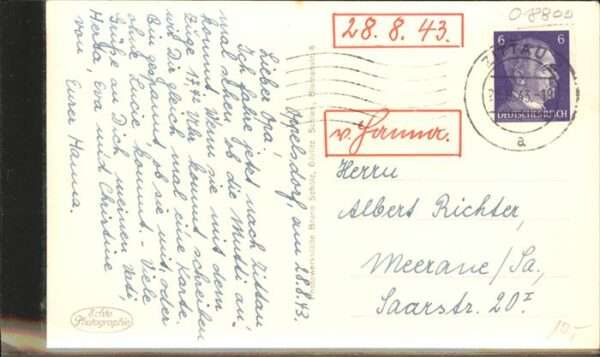 Oppelsdorf, am 28.8.43.
Lieber Opa,
Ich fahre jetzt nach Zittau,
mal sehen, ob die Mutti an-
kommt. Wenn sie mit dem
Zuge 17,12 Uhr kommt, schreiben
wir Dir gleich mal eine Karte.
Bin gespannt, ob sie mit, oder
ohne Lucie, kommt. - Viele
Grüße an Dich, meinen
Herba, Eva und Christine
von Eurer Hanna.
Echte
Photographie
28.8.43.
v. Hanna.
0-8800
6 6
ZITTAU
DEUTSCHES REICH
a
Herrn
Albert Richter,
Meerane/Sa.,
Saarstr. 20 I
10,-